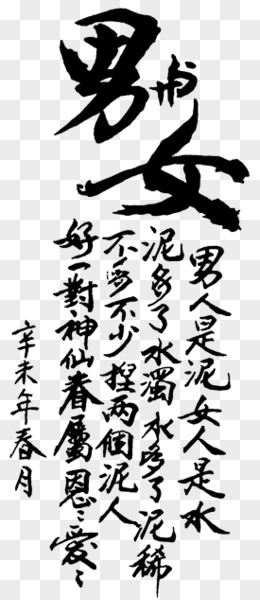 男女
男人是泥女人是水
泥多了水濁水多了泥稀
不多不少捏两個泥人
好一對神仙眷屬恩〻愛〻
辛未年春月